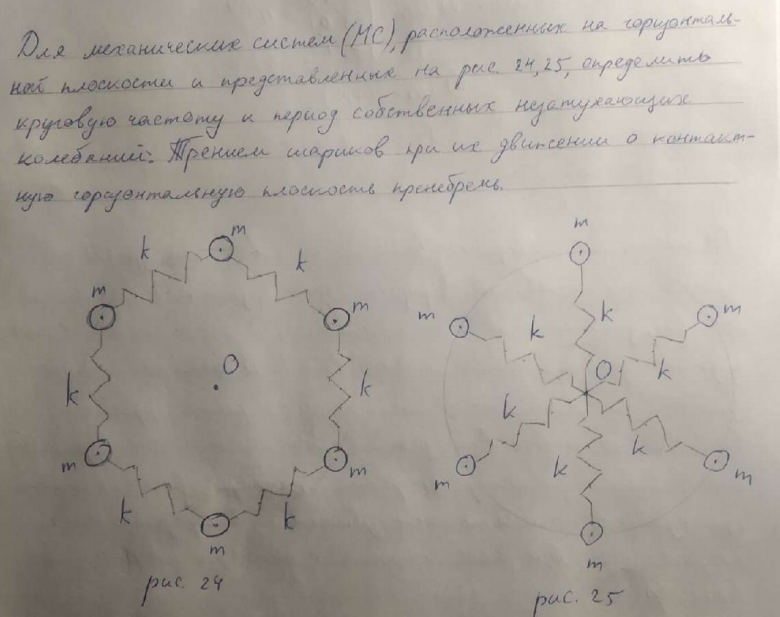 Для механических систем (МС), расположенных на горизонталь-
ной плоскости и представленных на рис. 24, 25, определить
круговую частоту и период собственных незатухающих
колебаний. Трением шариков при их движении о контакт-
ную горизонтальную плоскость пренебречь.
m
k
k
m
m
O
k
k
m
m
k
k
m
рис. 24
m
m
k
k
m
O
k
k
k
k
m
m
m
рис. 25